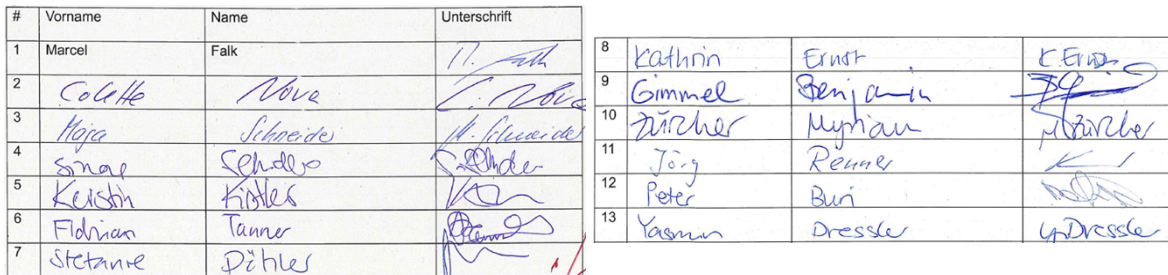 # Vorname Name Unterschrift
1 Marcel Falk
2 Colette Nova C. Nova
3 Schneider M. Schneider
4
5 Kerstin
6 Florian Tanner
7 Stefanie
8 Kathrin Ernst K. Ernst
9 Gimmel Benjamin
10 Zürcher Myriam M Zürcher
11 Jörg Renner
12 Peter Buri
13 Yasmin Dressler Y. Dressler